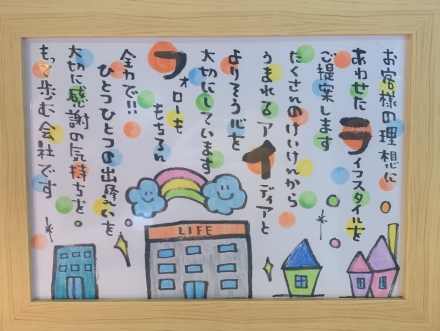 お客様の理想に
あわせたライフスタイルを
ご提案します
たくさんのけいけんから
うまれるアイディアと
よりそう心を
大切にしています
フォローももちろん
全力で!!
ひとつひとつの出逢いを
大切に感謝の気持ちを。
もって歩む会社です
LIFE